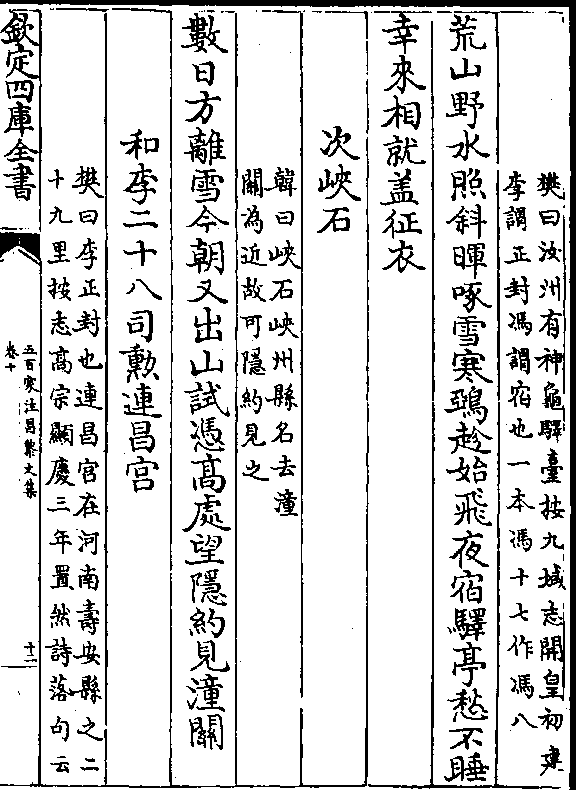 樊曰汝州有神龜驛臺按九域志開皇初建
李謂正封馮謂宿也一本馮十七作馮八
荒山野水照斜暉啄雪寒鵶趂始飛夜宿驛亭愁不睡
幸來相就盖征衣
次峽石
韓曰峽石峽州縣名去潼
關為近故可隱約見之
數日方離雪今朝又出山試憑髙處望隱約見潼關
和李二十八司勲連昌宫
樊曰李正封也連昌宫在河南壽安縣之二
十九里按志髙宗顯慶三年置然詩落句云
欽定四庫全書
五百家注昌黎文集
卷十
十二